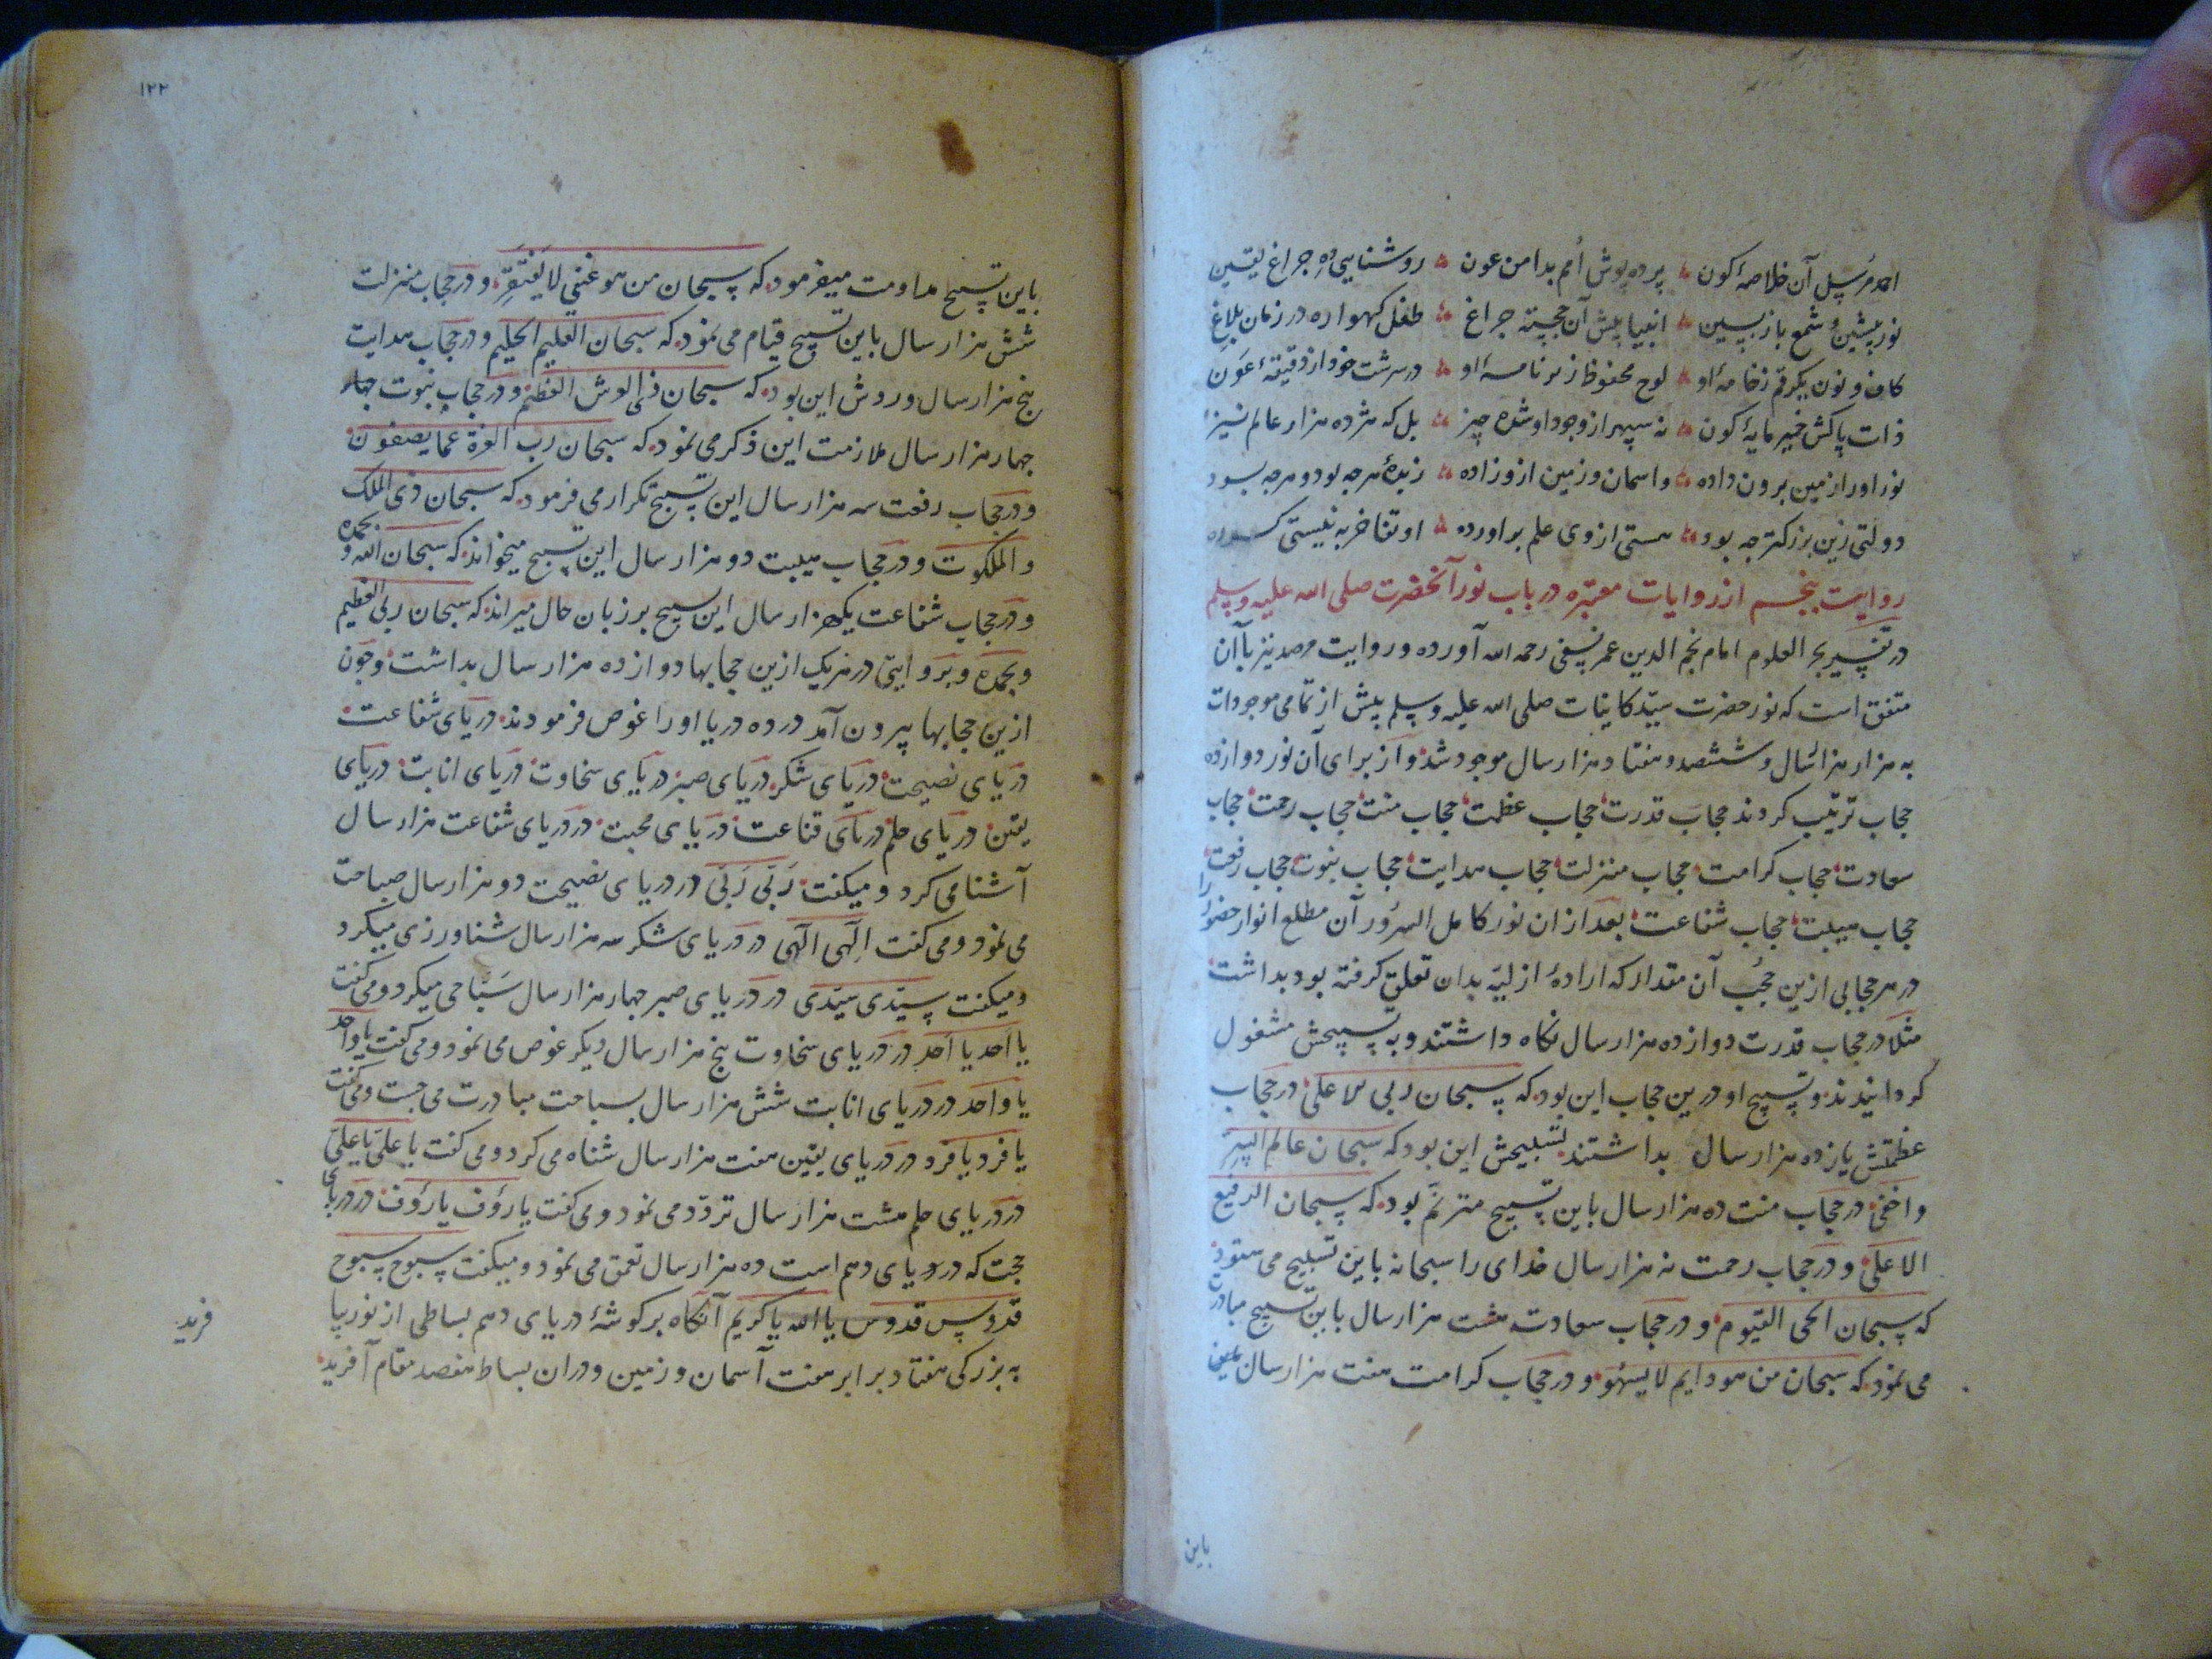 احمد مرسل آن خلاصهٔ کون ؞ پرده پوش اُمم بدامن عون ؞ روشنایی دهِ چراغ یقین
نور پیشین و شمع بازپسین ؞ انبیا پیش آن خجسته چراغ ؞ طفل کهواره در زمان بلاغ
کاف و نون یکرقم ز خامهٔ او ؞ لوح محفوظ زیر نامهٔ او ؞ در سرشت خود از دقیقهٔ عَون
ذات پاکش خمیر مایهٔ کون ؞ نه سپهر از وجود او شده چیز ؞ بل که هژده هزار عالم نیز
نور او را زمین برون داده ؞ و اسمان و زمین ازو زاده ؞ زبدهٔ هرچه بود و هرچه بود
دولتی زین بزرکتر چه بود ؞ هستی از وی علم براورده ؞ او تفاخر به نیستی کرده
روایت پنجم از روایات معتبره در باب نور آنحضرت صلی الله علیه وسلم
در تفسیر بحر العلوم امام نجم الدین عمر نسفی رحمه الله آورده و روایت مرصد نیز باآن
متفق است که نور حضرت سیّد کاینات صلی الله علیه وسلم پیش از تمامی موجودات
به هزار هزار سال و ششصد و هفتاد هزار سال موجود شد و از برای آن نور دوازده
حجاب ترتیب کردند حجاب قدرت حجاب عظمت حجاب منت حجاب رحمت حجاب
سعادت حجاب کرامت حجاب منزلت حجاب هدایت حجاب نبوت حجاب رفعت
حجاب هیبت حجاب شفاعت بعد از ان نور کامل السرور آن مطلع انوار حضور را
در هر حجابی ازین حجُب آن مقدار که ارادهٔ ازلیّه بدان تعلق کرفته بود بداشت
مثلا در حجاب قدرت دوازده هزار سال نکاه داشتند و به تسبیحش مشغول
کردانیدند و تسبیح او درین حجاب این بود که سبحان ربی الاعلی در حجاب
عظمتش یازده هزار سال بداشتند تسبیحش این بود که سبحان عالم السِرّ
و اخفی در حجاب منت ده هزار سال باین تسبیح مترنّم بود که سبحان الرفیع
الاعلی و در حجاب رحمت نه هزار سال خدای را سبحانه باین تسبیح می ستود
که سبحان الحی القیوم و در حجاب سعادت هشت هزار سال باین تسبیح مبادرت
می نمود که سبحان من هو دایم لا یسهو و در حجاب کرامت هفت هزار سال
باین
۱۲۲
باین تسبیح مداومت میفرمود که سبحان من هو غنی لا یَفتَقِر و در حجاب منزلت
شش هزار سال باین تسبیح قیام می نمود که سبحان العلیم الحلیم و در حجاب هدایت
پنج هزار سال وردش این بود که سبحان ذی العرش العظیم و در حجاب نبوت چهار
چهار هزار سال ملازمت این ذکر می نمود که سبحان رب العزة عما یصفون
و در حجاب رفعت سه هزار سال این تسبیح تکرار می فرمود که سبحان ذی الملک
و الملکوت و در حجاب هیبت دو هزار سال این تسبیح میخواند که سبحان الله و بحمده
و در حجاب شفاعت یکهزار سال این تسبیح بر زبان حال میراند که سبحان ربی العظیم
و بحمده و بروایتی در هر یک ازین حجابها دوازده هزار سال بداشت و چون
ازین حجابها بیرون آمد در ده دریا او را غوص فرمودند دریای شفاعت
دریای نصیحت دریای شکر دریای صبر دریای سخاوت دریای انابت دریای
یقین دریای حلم دریای قناعت دریای محبت در دریای شفاعت هزار سال
آشنا می کرد و میکفت رَبّی رَبّی در دریای نصیحت دو هزار سال صباحت
می نمود و می کفت الهی الهی در دریای شکر سه هزار سال شناورزی میکرد
و میکفت سیّدی سیّدی در دریای صبر چهار هزار سال سَبّاحی میکرد و می کفت
یا احد یا احد در دریای سخاوت پنج هزار سال دیکر غوص می نمود و می کفت یا واحد
یا واحد در دریای انابت شش هزار سال بسباحت مبادرت می جست و می کفت
یا فرد یا فرد در دریای یقین هفت هزار سال شناه می کرد و می کفت یا علیّ یا علیّ
در دریای حلم هشت هزار سال تردّد می نمود و می کفت یا رؤف یا رؤف در دریای
محبت که دریای دهم است ده هزار سال تعمق می نمود و میکفت سبوح سبوح
قدوس قدوس یا الله یا کریم آنکاه بر کوشهٔ دریای دهم بساطی از نور بیا
به بزرکی هفتاد برابر هفت آسمان و زمین و دران بساط هفصد مقام آفرید
فرید